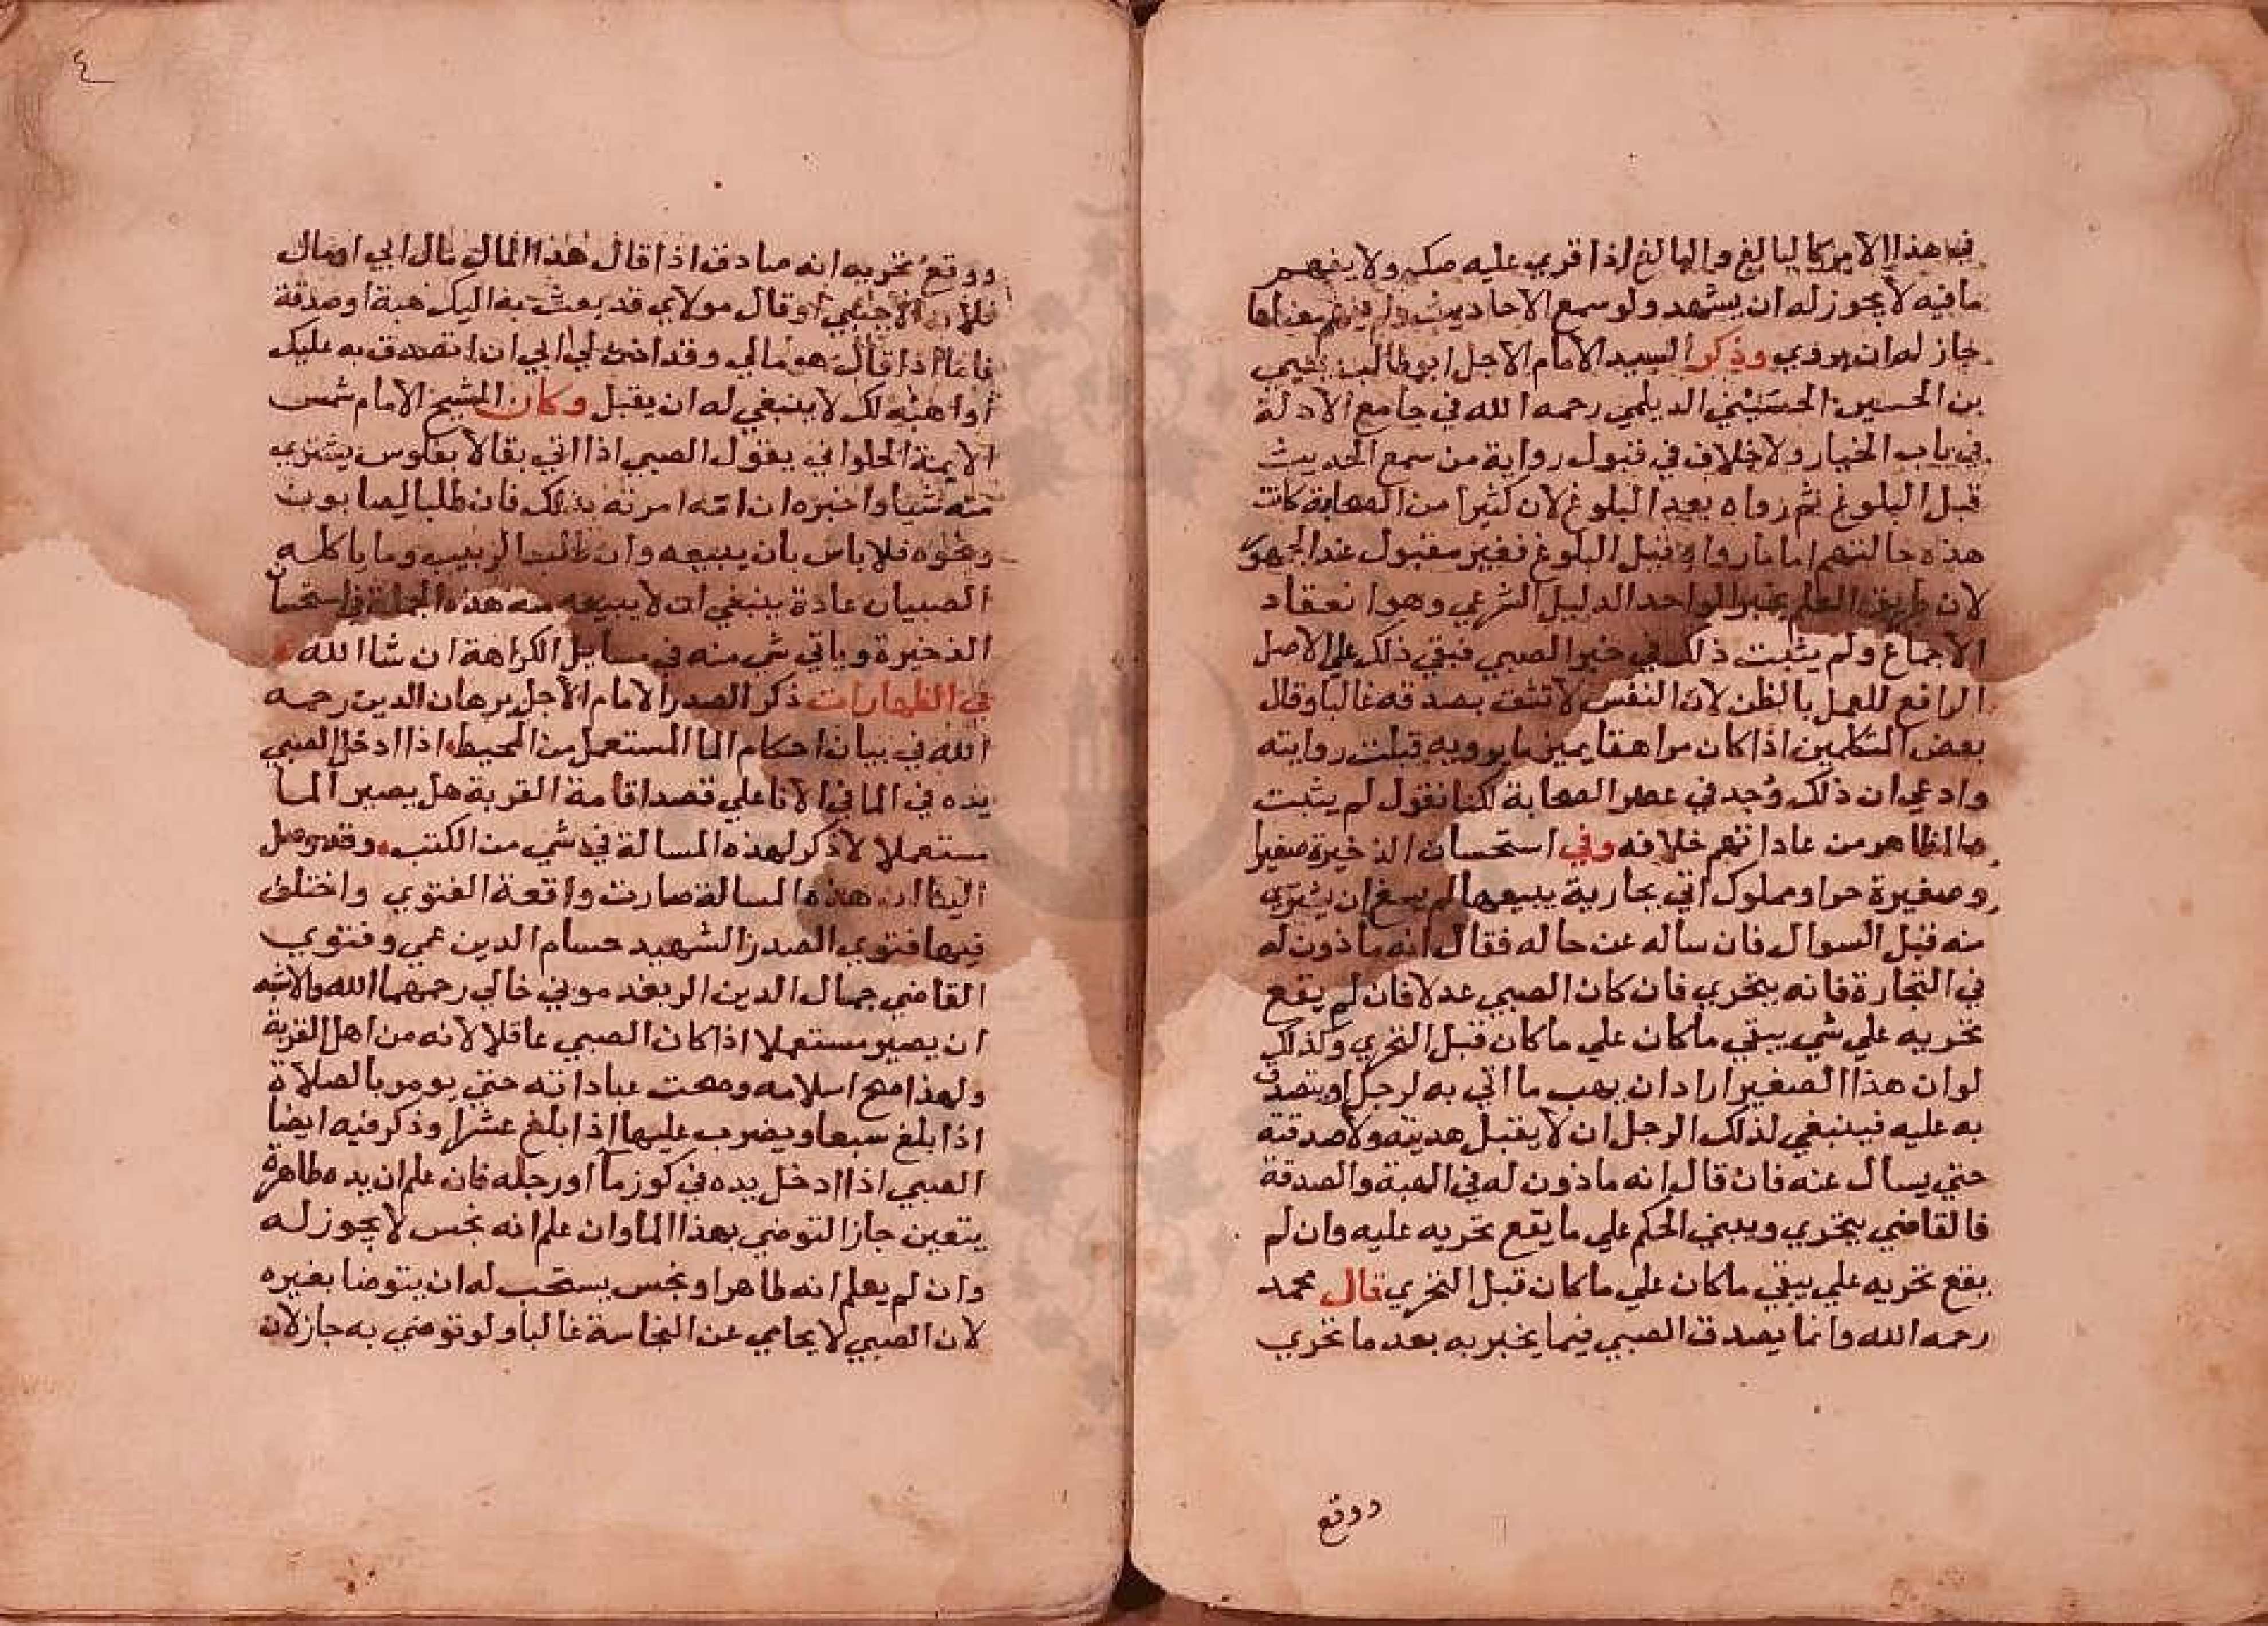 في هذا الامر كالبالغ والبالغ اذا قري عليه صك ولا يفهم
ما فيه لا يجوز له ان يشهد ولو سمع الاحاديث ولم يفهم معناها
جاز له ان يروي وذكر السيد الامام الاجل ابو طالب يحيي
بن الحسين الحسيني الديلمي رحمه الله في جامع الادلة
في باب الخيار ولا خلاف في قبول رواية من سمع الحديث
قبل البلوغ ثم رواه بعد البلوغ لان كثيرا من الصحابة كانت
هذه حالتهم اما ما رواه قبل البلوغ فغير مقبول عند الجمهو
لان طريق العلم بخبر الواحد الدليل الشرعي وهو انعقاد
الاجماع ولم يثبت ذلك في خبر الصبي فبقي ذلك علي الاصل
الرافع للعمل بالظن لان النفس لا تثق بصدقه غالبا وقال
بعض المتكلمين اذا كان مراهقا يميز ما يرويه قبلت روايته
وادعي ان ذلك وُجد في عصر الصحابة لكنا نقول لم يثبت
والظاهر من عاداتهم خلافه وفي استحسان الذخيرة صغيرا
وصغيرة حر او مملوك اتي بجارية يبيعها لم يسغ ان يشتري
منه قبل السوال فان ساله عن حاله فقال انه ماذون له
في التجارة فانه يتحري فان كان الصبي عدلا فان لم يقع
تحريه علي شي يبقي ما كان علي ما كان قبل التحري وكذلك
لو ان هذا الصغير اراد ان يهب ما اتي به لرجل او يتصدق
به عليه فينبغي لذلك الرجل ان لا يقبل هديته ولا صدقته
حتي يسال عنه فان قال انه ماذون له في الهبة والصدقة
فالقاضي يتحري ويبني الحكم علي ما يقع تحريه عليه وان لم
يقع تحريه علي يبقي ما كان علي ما كان قبل التحري قال محمد
رحمه الله وانما يصدق الصبي فيما يخبر به بعد ما تحري
ووقع
٤
ووقع تحريه انه صادق اذا قال هذا المال مال ابي او مال
فلان الاجنبي او قال مولاي قد بعث به اليك هبة او صدقة
فاما اذا قال هو مالي وقد اذن لي ابي ان اتصدق به عليك
او اهبه لك لا ينبغي له ان يقبل وكان الشيخ الامام شمس
الايمة الحلواني يقول الصبي اذا اتي بقالا بفلوس يشتري
منه شيا واخبره ان امه امرته بذلك فان طلب الصابون
ونحوه فلا باس بان يبيعه وان طلب الزبيب وما ياكله
الصبيان عادة ينبغي ان لا يبيعه منه هذه الجملة في استحسا
الذخيرة وياتي شي منه في مسايل الكراهة ان شا الله
في الطهارات ذكر الصدر الامام الاجل برهان الدين رحمه
الله في بيان احكام الما المستعمل من المحيط اذا ادخل الصبي
يده في الما في الانا علي قصد اقامة القربة هل يصير الما
مستعملا لا ذكر لهذه المسالة في شي من الكتب وقد وصل
الينا ان هذه المسالة صارت واقعة الفتوي واختلف
فيها فتوي الصدر الشهيد حسام الدين عمي وفتوي
القاضي جمال الدين الريغدموني خالي رحمهما الله والاشبه
ان يصير مستعملا اذا كان الصبي عاقلا لانه من اهل القربة
ولهذا صح اسلامه وصحت عباداته حتي يومر بالصلاة
اذا بلغ سبعا ويضرب عليها اذا بلغ عشرا وذكر فيه ايضا
الصبي اذا ادخل يده في كوز ما او رجله فان علم ان يده طاهرة
بتعين جاز التوضي بهذا الما وان علم انه نجس لا يجوز له
وان لم يعلم انه طاهر او نجس يستحب له ان يتوضا بغيره
لان الصبي لا يحامي عن النجاسة غالبا ولو توضي به جاز لان